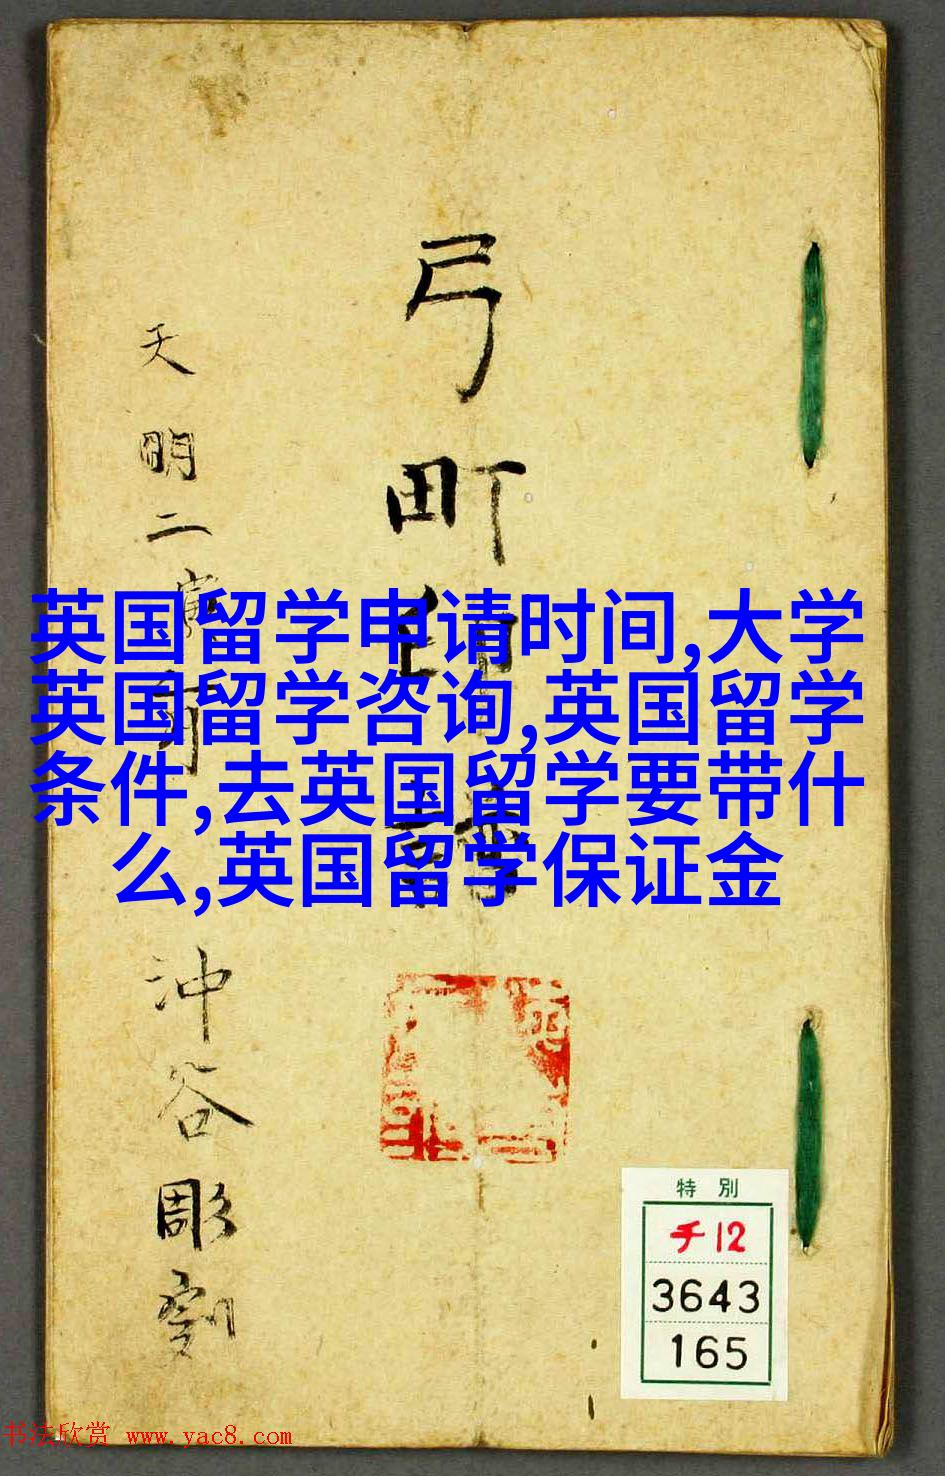 弓町印譜
天明二寅
冲谷彫刻
英国留学申请时间,大学
英国留学咨询,英国留学
条件,去英国留学要带什
么,英国留学保证金
特別
チ12
3643
165
书法欣赏 www.yac8.com